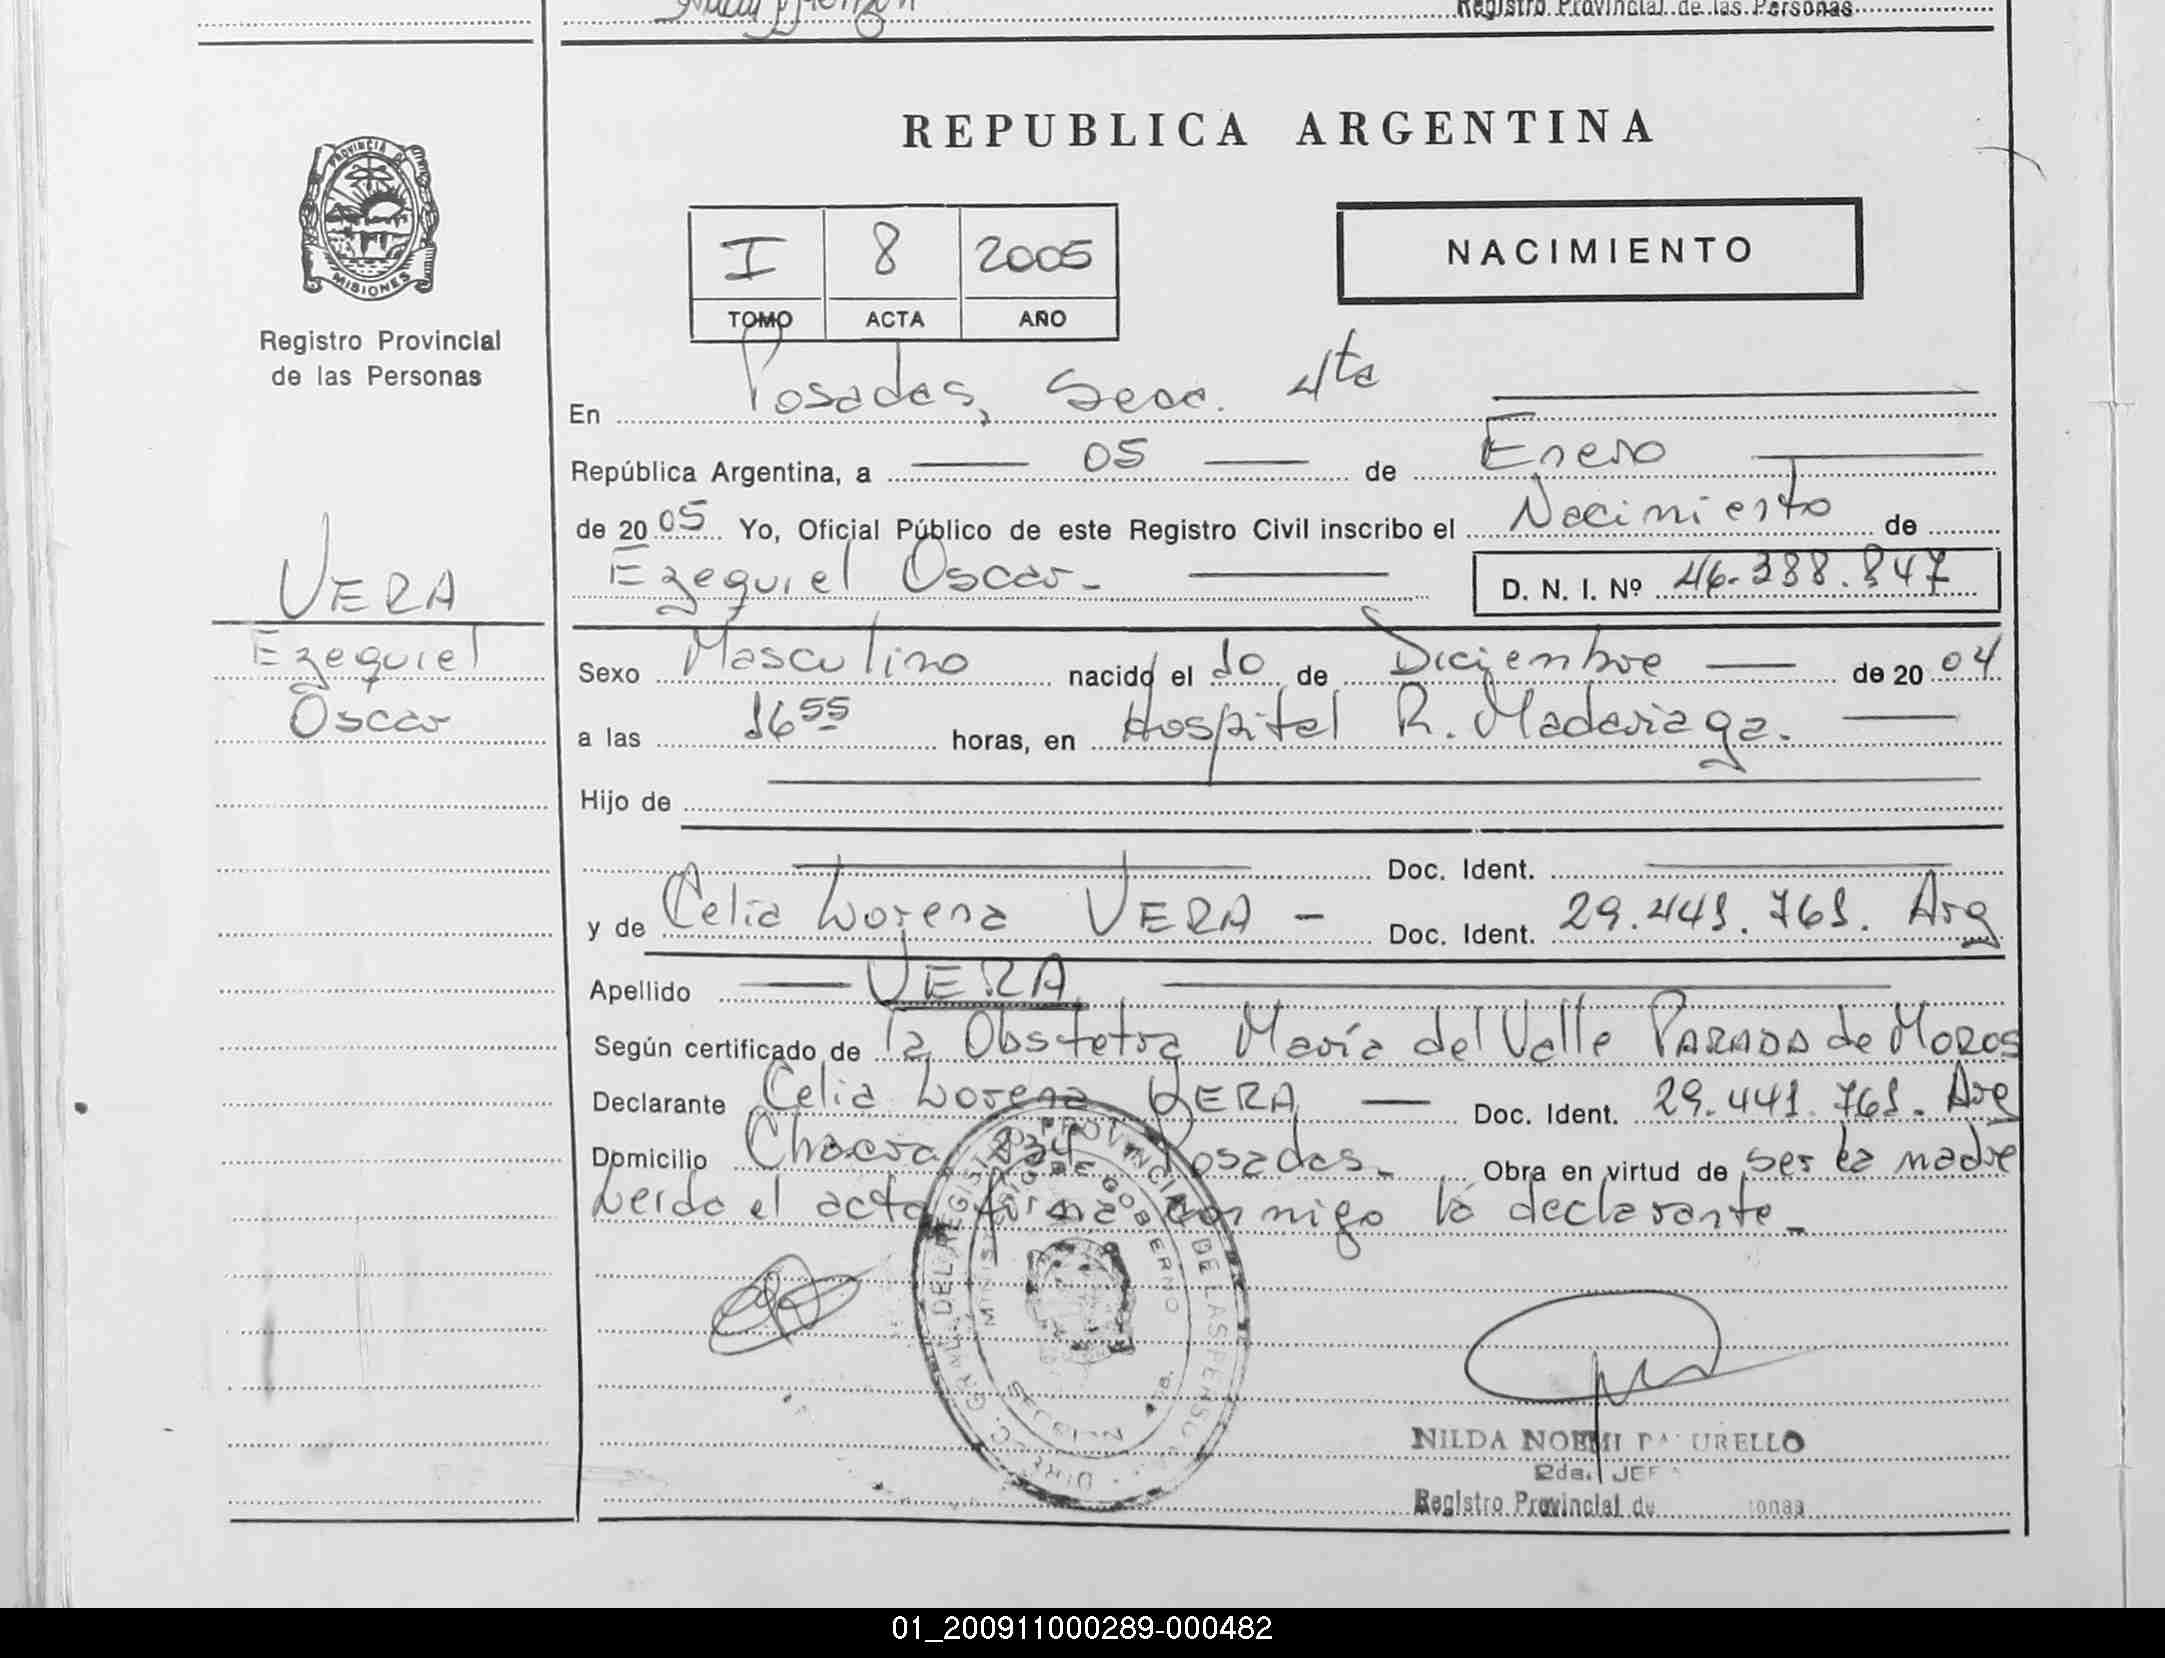 Registro Provincial de las Personas
PROVINCIA DE
MISIONES
Registro Provincial
de las Personas
VERA
Ezequiel
Oscar
REPUBLICA ARGENTINA
I 8 2005
TOMO ACTA AÑO
NACIMIENTO
En Posadas, Secc. 4ta
República Argentina, a 05 de Enero
de 20 05 Yo, Oficial Público de este Registro Civil inscribo el Nacimiento de
Ezequiel Oscar.- D. N. I. Nº 46.388.847
Sexo Masculino nacido el 10 de Diciembre de 20 04
a las 16 55 horas, en Hospital R. Madariaga.
Hijo de
Doc. Ident.
y de Celia Lorena VERA - Doc. Ident. 29.441.761. Arg
Apellido VERA
Según certificado de la Obstetra María del Valle PARADA de MOROS
Declarante Celia Lorena VERA Doc. Ident. 29.441.761. Arg
Domicilio Chacra 234 Posadas.- Obra en virtud de ser la madre
Leida el acta firma conmigo la declarante.-
PROVINCIAL DE LAS PERSONAS
DE GOBIERNO
NILDA NOEMI
2da. JEFA
Registro Provincial de
01_200911000289-000482